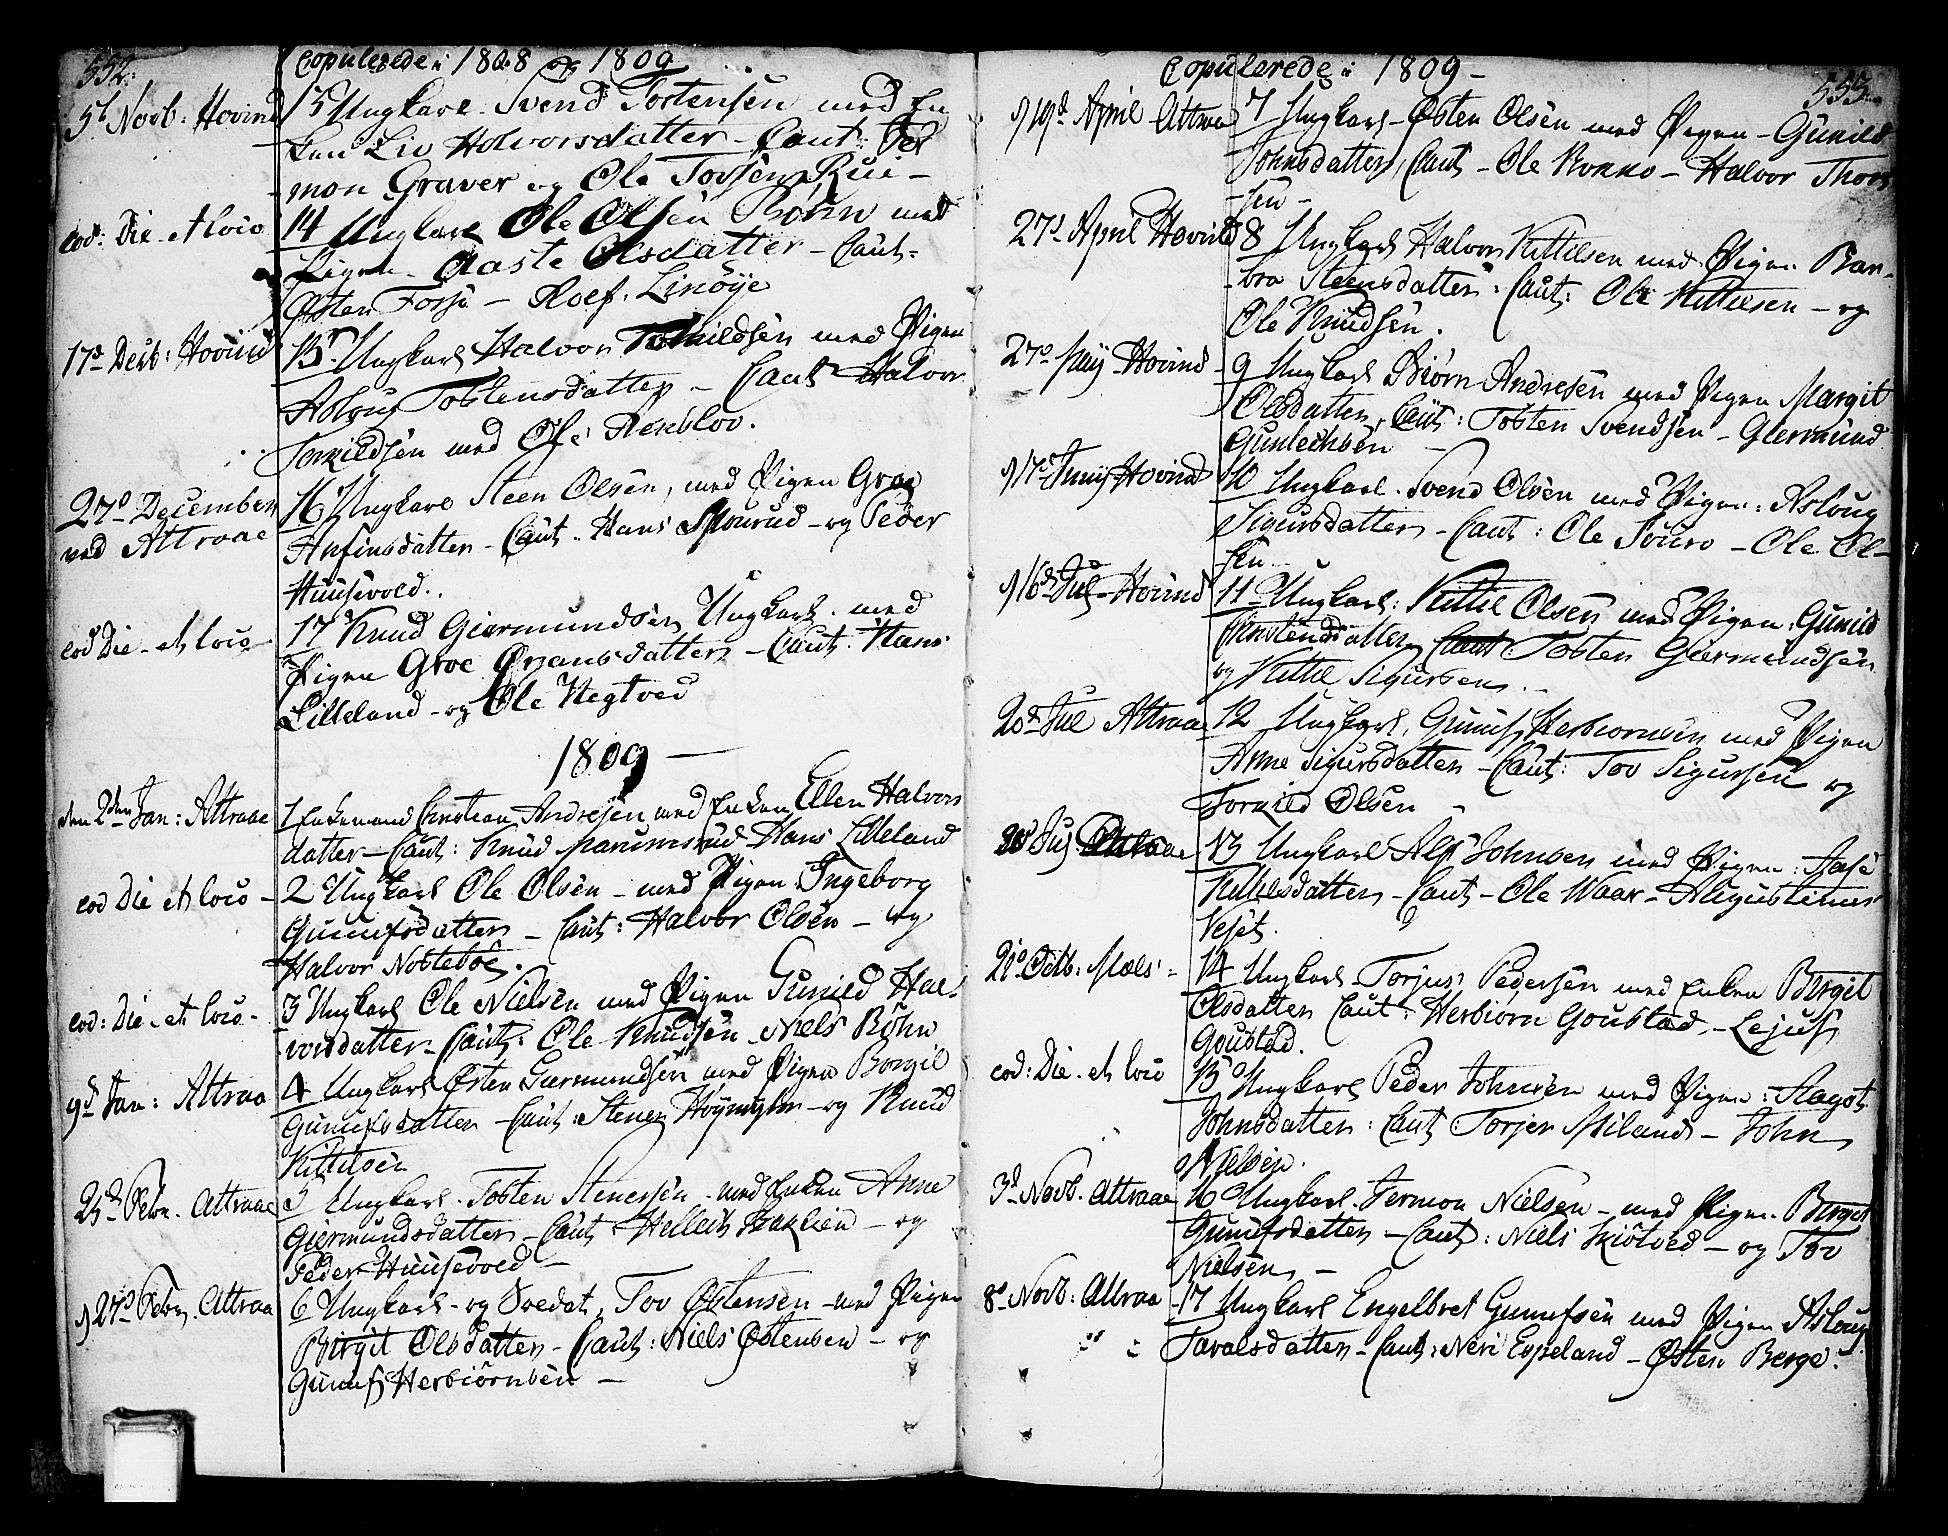 552.
Copulerede i 1808 og 1809
5t Novb: Hovind
13 Ungkarl Svend Tostensen med En
ken Liv Halvorsdatter - Caut: Fer
mon Graver og Ole Tovsen Rui -
eod: Die et loco
14 Ungkarl Ole Olsen Bøhn med
Pigen - Aaste Olsdatter - Caut-
Østen Forse - Roef. Linøye
17d Decb: Hovind
15 Ungkarl Halvor Torkildsen med Pigen
Asloug Tostensdatter - Caut Halvor
Torkildsen med Ole
27d December
ved Attraae
16 Ungkarl Steen Olsen, med Pigen Groe
Anfinsdatter - Caut. Hans Mourud - og Peder
Huusevold.
eod Die - et loco
17 Knud Giermundsen Ungkarl. med
Pigen Groe Ørjansdatter - Caut. Hans
Lilleland - og Ole Hegtved
1809 -
den 2den Jan: Attraae
1 Enkemand Christian Andresen med Enken Ellen Halvors
datter - Caut: Knud Marumsrud Hans Lilleland
eod Die et loco -
2 Ungkarl Ole Olsen - med Pigen Ingeborg
Gunufsdatter - Caut: Halvor Olsen - og
Halvor Nosteböe.
eod: Die - et loco -
3 Ungkarl Ole Nielsen med Pigen Gunild Hal-
vorsdatter - Caut: Ole Knudsen - Niels Böhn
9d Jan: Attraa
4 Ungkarl Østen Giermundsen med Pigen Borgil
Gunufsdatter - Caut: Stener - og Knud
Kittilsen
23d Febr. Attraae
5 Ungkarl. Tosten Stenersen - med Enken Anne
Giermundsdatter - Caut Helleik Bakken - og
Peder Huusevold -
27d Febr. Attraa
6 Ungkarl - og Soldat, Tov Østensen - med Pigen
Birgit Olsdatter - Caut: Niels Østensen - og
Gunuf Herbiörnsen -
Copulerede i 1809 -
553.
19d April Attraa
7 Ungkarl - Østen Olsen med Pigen - Gunild
Johnsdatter, Caut - Ole Bonko - Halvor Thors
sen -
27d April Hovind
8 Ungkarl Halvor Kittilsen med Pigen Bar-
bra Steensdatter: Caut: Ole Kittilsen - og
Ole Knudsen.
27d Maij Hovind
9 Ungkarl Biörn Andresen med Pigen Margit
Olsdatter, Caut: Tosten Svendsen - Giermund
Gunleichsen -
17d Junij Hovind
10 Ungkarl. Svend Olsen med Pigen: Asloug
Sigursdatter - Caut: Ole - Ole Ol-
sen -
16d Jul - Hovind
11 Ungkarl: Kittil Olsen med Pigen: Gunild
Caut Tosten Giermundsen
og Kittil Sigursen -
20d Jul Attraae
12 Ungkarl, Gunuf Herbiornsen med Pigen
Anne Sigursdatter - Caut: Tov Sigursen og
Torkild Olsen -
Jul
13 Ungkarl Alf Johnsen med Pigen: Aase
Kittilsdatter - Caut - Ole Waar - Augustinus
Vesjet.
21d Octb: Moels -
14 Ungkarl - Torjus Pedersen med Enken Bergit
Olsdatter Caut: Herbiörn Goustad - Lejuf
Goustad.
eod: Die - et loco
15 Ungkarl Peder Johnsen med Pigen: Aagot
Johnsdatter: Caut Torjer Miland - John
Nielsen.
3d Novb. Attraae
16 Ungkarl. Fermon Nielsen - med Pigen. Birget
Gunufsdatter - Caut: Niels Skiötved - og Tov
Nielsen -
8d Novb: Attraa
17 Ungkarl Engelbret Gunufsen med Pigen Asloug
Tavalsdatter - Caut: Neri Espeland - Østen Berge.